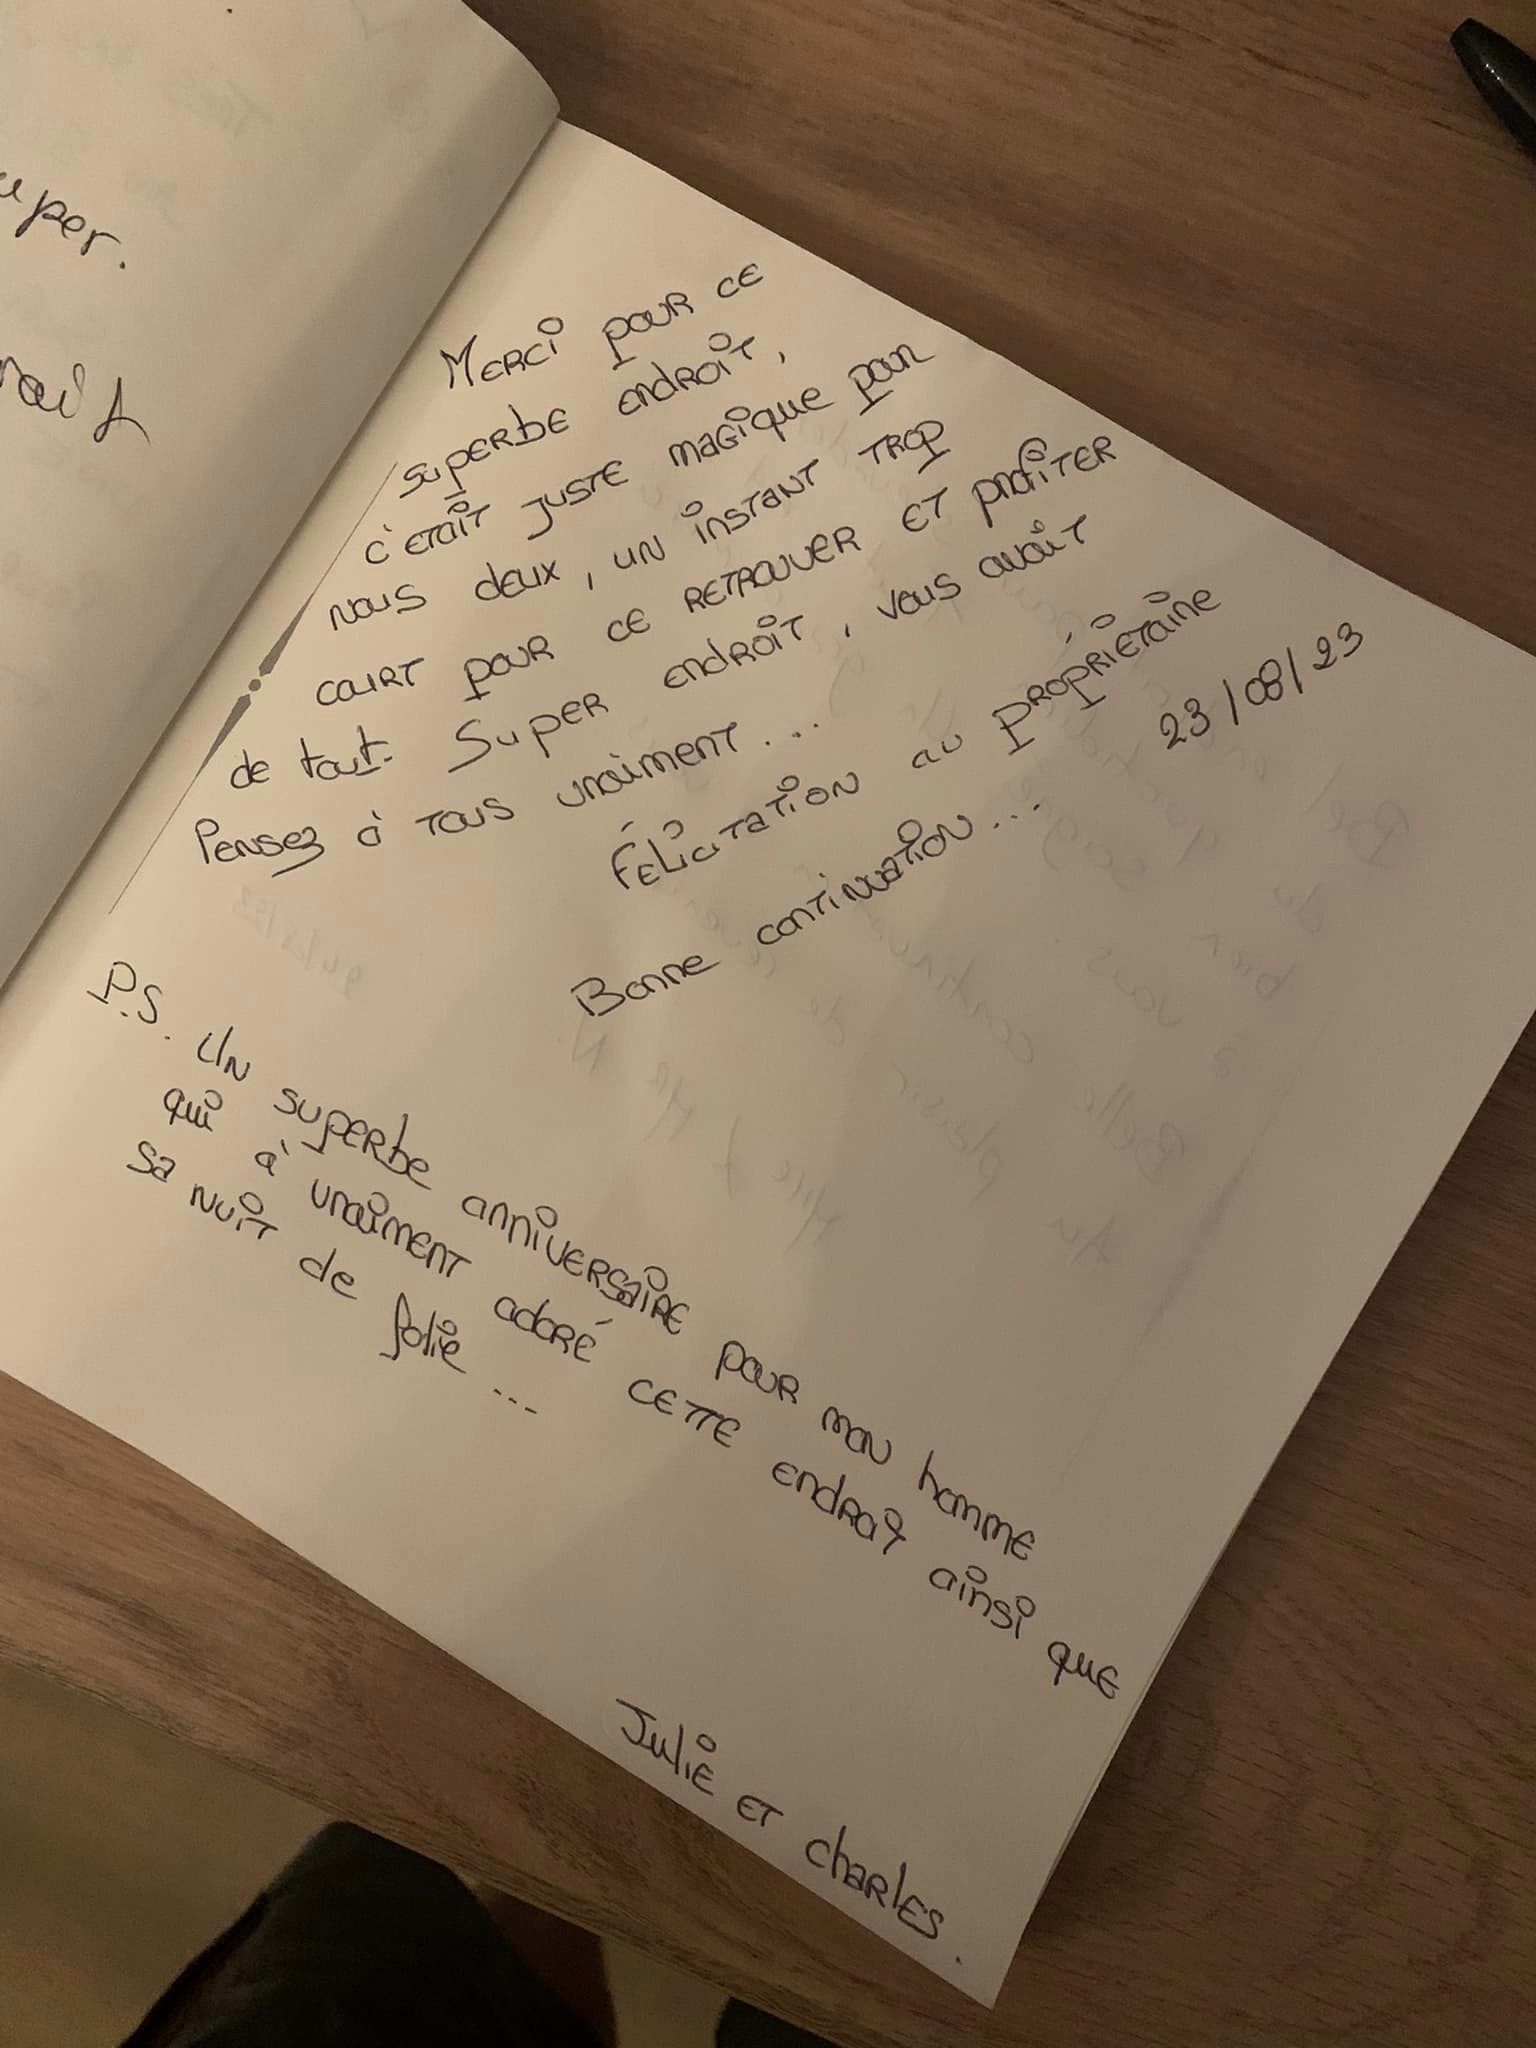 uper.
rait
Merci pour ce
superbe endroit,
c'etait juste magique pour
nous deux, un instant trop
court pour ce retrouver et profiter
de tout. Super endroit, vous avait
Pensez à tous vraiment...
Félicitation au propriétaire
Bonne continuation...
23/08/23
P.S. Un superbe anniversaire pour mon homme
qui à vraiment adoré cette endroit ainsi que
sa nuit de folie ...
Julie et charles.